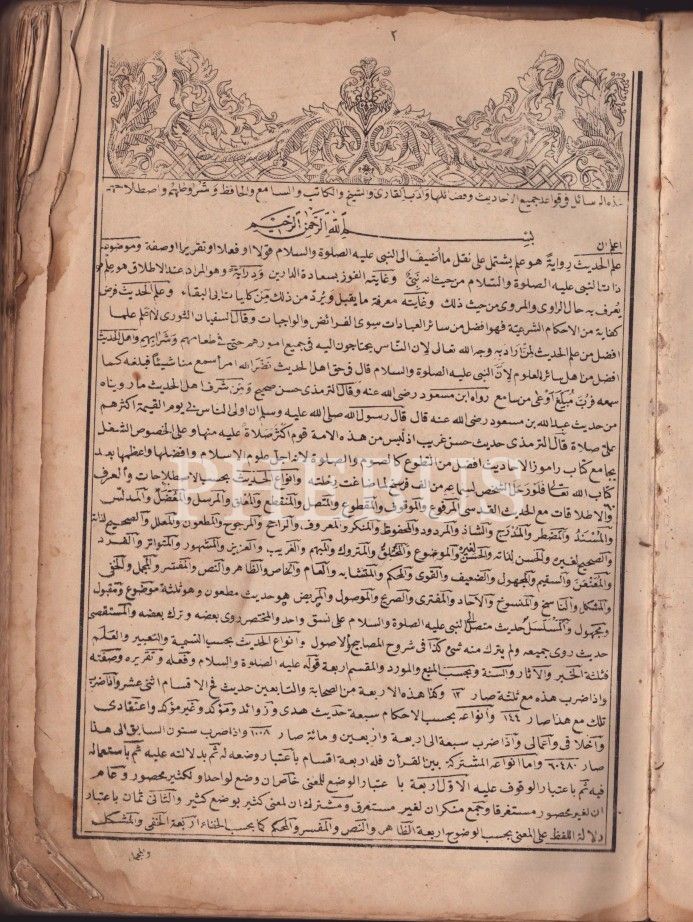 ٢
هذه الرسائل فى قواعد جميع الاحاديث وفضائلها وآداب القارى والشيخ والكاتب والسامع والحافظ وشروطهم واصطلاحهم
بسم الله الرحمن الرحيم
اعلم ان
علم الحديث رواية هو علم يشتمل على نقل ما اضيف الى النبى عليه الصلوة والسلام قولا او فعلا او تقريرا او صفة وموضوعه
ذات النبى عليه الصلوة والسلام من حيث انه نبى وغايته الفوز بسعادة الدارين ودراية وهو المراد عند الاطلاق هو علم
يعرف به حال الراوى والمروى من حيث ذلك وغايته معرفة ما يقبل ويرد من ذلك من كليات ابى البقاء وعلم الحديث فرض
كفاية من الاحكام الشرعية فهو افضل من سائر العبادات سوى الفرائض والواجبات وقال السفيان الثورى لا اعلم علما
افضل من علم الحديث لمن اراد به وجه الله تعالى لان الناس يحتاجون اليه فى جميع امورهم حتى فى طعامهم وشرابهم واهل الحديث
افضل من اهل سائر العلوم لان النبى عليه الصلوة والسلام قال فى حق اهل الحديث نضر الله امرأ سمع منا شيئا فبلغه كما
سمعه فرب مبلغ اوعى من سامع رواه ابن مسعود رضى الله عنه وقال الترمذى حسن صحيح ومن شرف اهل الحديث ما رويناه
من حديث عبد الله بن مسعود رضى الله عنه قال قال رسول الله صلى الله عليه وسلم ان اولى الناس بى يوم القيمة اكثرهم
على صلاة قال الترمذى حديث حسن غريب اذ ليس من هذه الامة قوم اكثر صلاة عليه منها وعلى الخصوص الشغل
بجامع كتاب راموز الاحاديث افضل من التطوع كالصوم والصلوة لانه اجل علوم الاسلام وافضلها واعظمها بعد
كتاب الله تعالى وانواع الحديث بحسب الاصطلاحات والعرف
والاطلاقات مع الحديث القدسى المرفوع والموقوف والمقطوع والمتصل والمنقطع والمعلق والمرسل والمعضل والمدلس
والمسند والمضطر والمدرج والشاذ والمردود والمحفوظ والمنكر والمعروف والراجح والمرجوح والمطعون والمعلل والصحيح لذاته
والصحيح لغيره والحسن لذاته والحسن لغيره والموضوع والمتروك والمبهم والغريب والعزيز والمشهور والمتواتر والفرد
والمعنعن والسقيم والمجهول والضعيف والقوى والمحكم والمتشابه والعام والخاص والظاهر والنص والمفسر والمجمل والخفى
والمشكل والناسخ والمنسوخ والآحاد والمفترى والصريح والموصول والمريض هو حديث مطعون وهو ثلثة موضوع ومقبول
ومجهول والمسلسل حديث متصل الى النبى عليه الصلوة والسلام على نسق واحد والمختصر روى بعضه وترك بعضه والمستقصى
حديث روى جميعه ولم يترك منه شئ كذا فى شروح المصابيح الاصول وانواع الحديث بحسب التسمية والتعبير والعلم
فثلثة الخبر والآثار والسنة وبحسب المنبع والمورد والمقسم اربعة قوله عليه الصلوة والسلام وفعله وتقريره وصفته
واذا ضرب هذه مع ثلثة صار ١٢ وكذا هذه الاربعة من الصحابة والتابعين حديث فح الاقسام اثنى عشر واذا ضرب
تلك مع هذا صار ١٤٤ وانواعه بحسب الاحكام سبعة حديث هدى وزوائد ومؤكد وغير مؤكد واعتقادى
واخلاقى واعمالى واذا ضرب سبعة الى اربعة واربعين ومائة صار ١٠٠٨ واذا ضرب ستون السابق الى هذا
صار ٦٠٤٨٠ واما انواعه المشتركة بين القرآن فله اربعة اقسام باعتبار وضعه له ثم بدلالته عليه ثم باستعماله
فيه ثم باعتبار الوقوف عليه الاول اربعة باعتبار الوضع للمعنى خاص ان وضع لواحد او لكثير محصور وعام
ان لغير محصور مستغرقا وجمع منكر ان لغير مستغرق ومشترك ان لمعنى كثير بوضع كثير والثانى ثمان باعتبار
دلالة اللفظ على المعنى بحسب الوضوح اربعة الظاهر والنص والمفسر والمحكم كما بحسب الخفاء اربعة الخفى والمشكل
والمجمل
PHEBUS